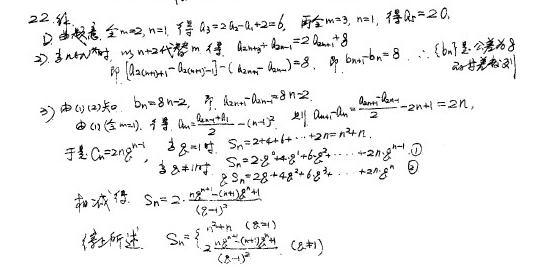 22.解
1) 由题意,令m=2,n=1,得 a₃=2a₂-a₁+2=6,再令m=3,n=1,得a₅=20.
2) 当n∈N*时,以n+2代替m得 a₂ₙ₊₃+a₂ₙ₋₁=2a₂ₙ₊₁+8
即[a₂₍ₙ₊₁₎₊₁-a₂₍ₙ₊₁₎₋₁]-(a₂ₙ₊₁-a₂ₙ₋₁)=8. 即 bₙ₊₁-bₙ=8. ∴{bₙ}是公差为8
的等差数列
3) 由(1)(2)知 bₙ=8n-2, 即 a₂ₙ₊₁-a₂ₙ₋₁=8n-2.
由(1)(令m=1),得aₙ=(a₂ₙ₋₁+a₁)/2-(n-1)². 则 aₙ₊₁-aₙ=(a₂ₙ₊₁-a₂ₙ₋₁)/2-2n+1=2n,
于是Cₙ=2nqⁿ⁻¹, 当q=1时, Sₙ=2+4+6+…+2n=n²+n.
当q≠1时, Sₙ=2·q⁰+4·q¹+6·q²+……+2n·qⁿ⁻¹ ①
qSₙ=2q+4q²+6q³+……+2n·qⁿ ②
相减得 Sₙ=2·(nqⁿ⁺¹-(n+1)qⁿ+1)/(q-1)²
综上所述 Sₙ={n²+n (q=1)
2(nqⁿ⁺¹-(n+1)qⁿ+1)/(q-1)² (q≠1)